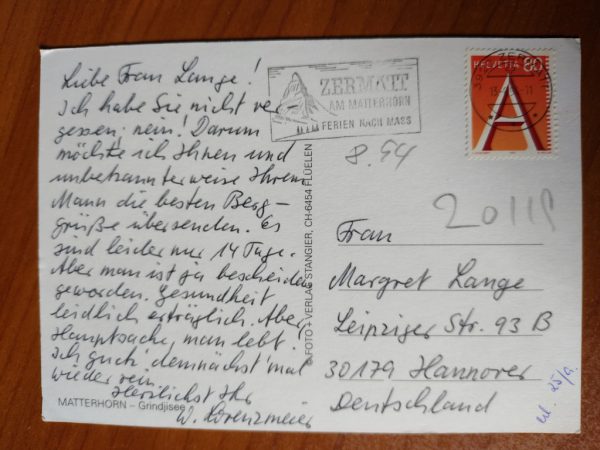 Liebe Frau Lange!
Ich habe Sie nicht ver-
gessen; nein! Darum
möchte ich Ihnen und
unbekannterweise Ihrem
Mann die besten Berg-
grüße übersenden. Es
sind leider nur 14 Tage.
Aber man ist ja bescheiden
geworden. Gesundheit
leidlich erträglich. Aber
Hauptsache, man lebt!
Ich guck' demnächst 'mal
wieder rein.
Herzlichst Ihr
W. Lorenzmeier
MATTERHORN – Grindjisee
© FOTO + VERLAG STANGIER, CH-6454 FLÜELEN
ZERMATT
AM MATTERHORN
FERIEN NACH MASS
HELVETIA 80
A
8.94
20119
Frau
Margret Lange
Leipziger Str. 93 B
30179 Hannover
Deutschland